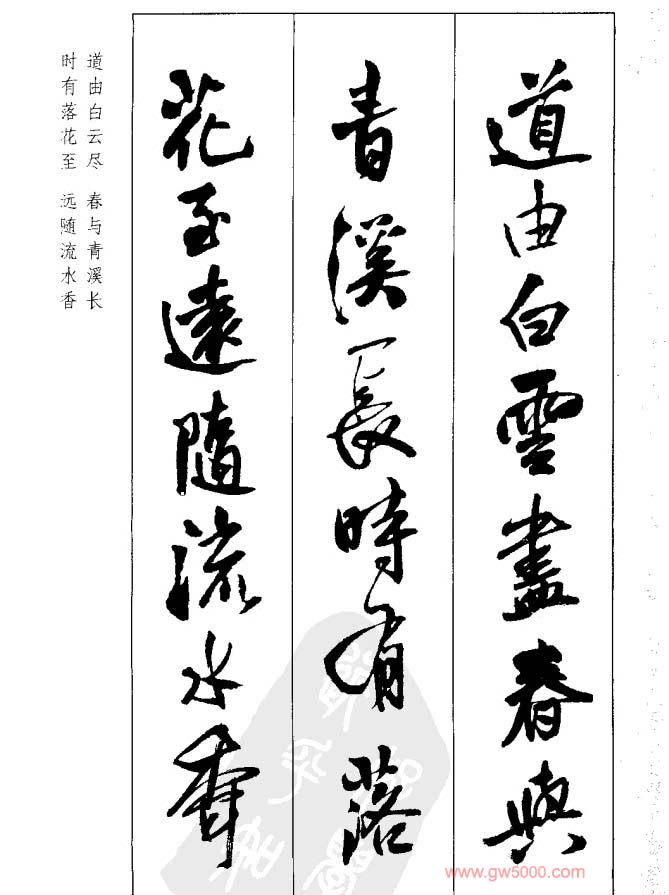 道由白雲盡春與
青溪長時有落
花至遠隨流水香
道由白云尽 春与青溪长
时有落花至 远随流水香
www.gw5000.com